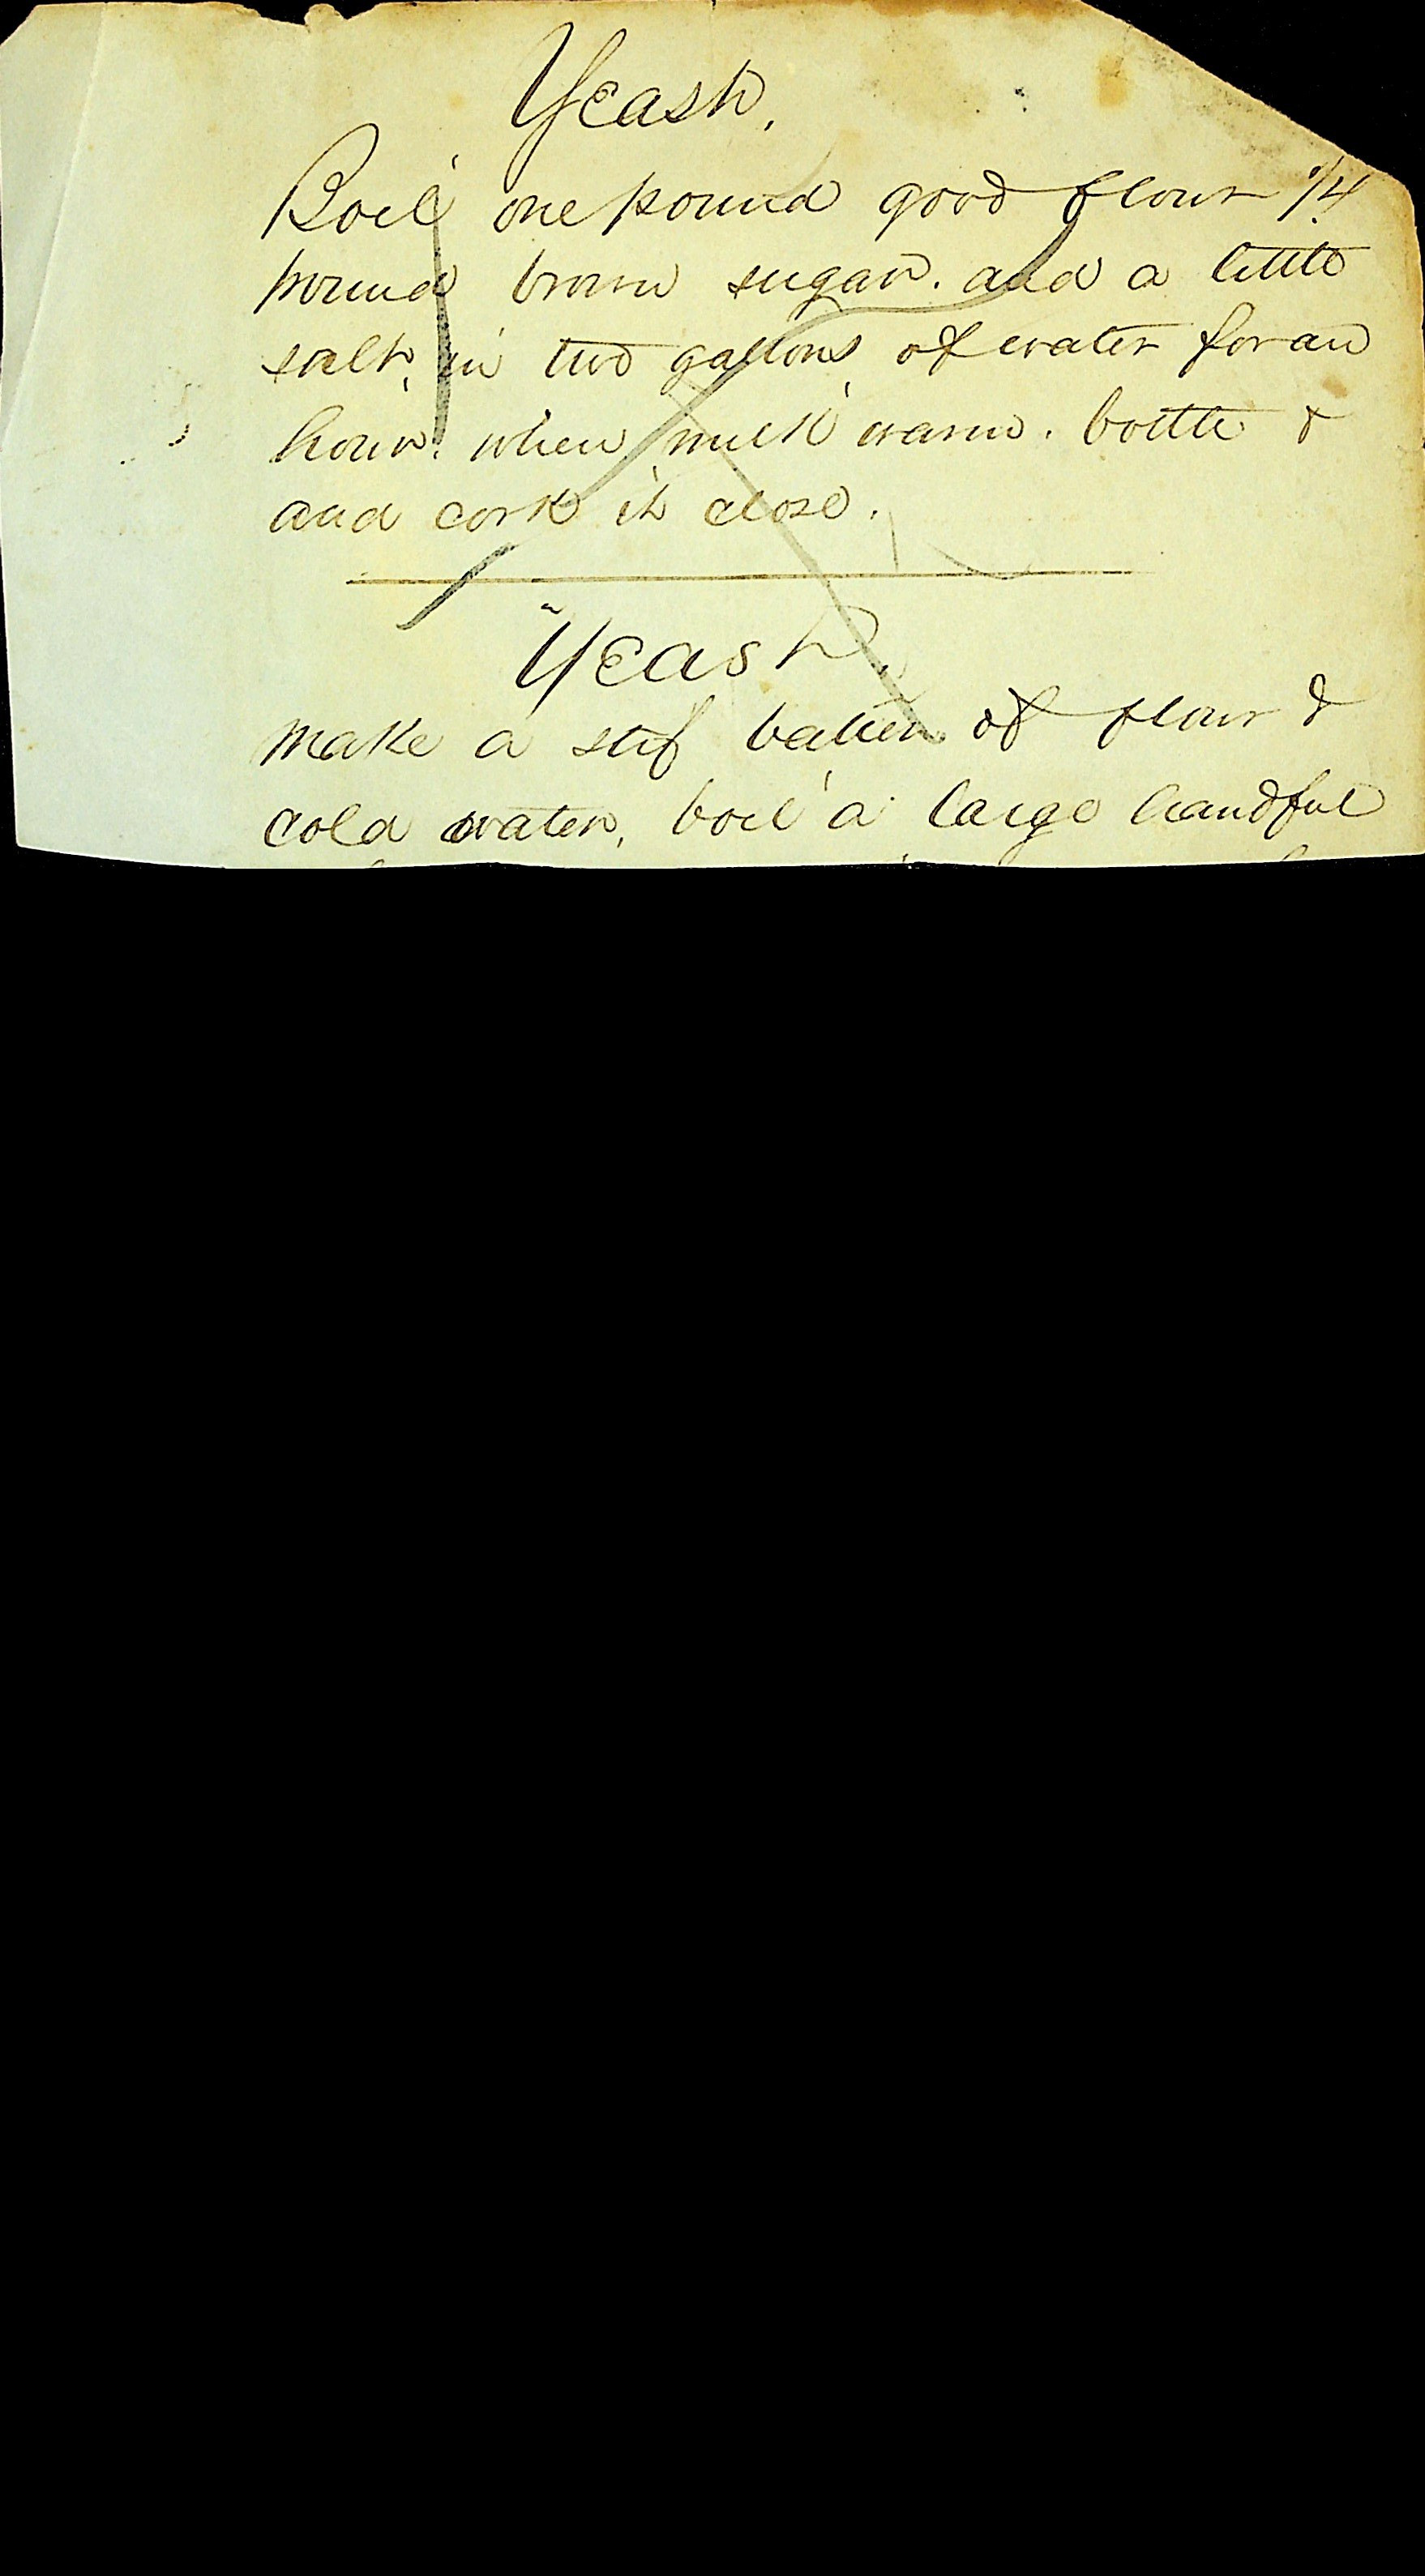 Yeast.
Boil one pound good flour 1/4
pound brown sugar. and a little
salt, in two gallons of water for an
hour. when milk warm. bottle &
and cork it close.
Yeast.
make a stif batter of flour &
cold water, boil a large handful